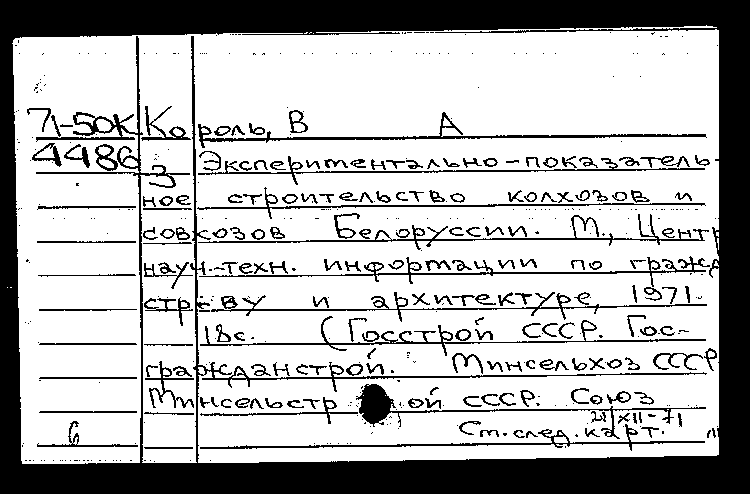 71-50К Король, В А
4486 3 Экспериментально-показатель-
ное строительство колхозов и
совхозов Белоруссии. М., Центр
науч.-техн. информации по гражд
стр-ву и архитектуре, 1971.
18с. (Госстрой СССР. Гос-
гражданстрой. Минсельхоз СССР
Минсельстрой СССР. Союз
21/XII-71
6 Ст. след. карт.